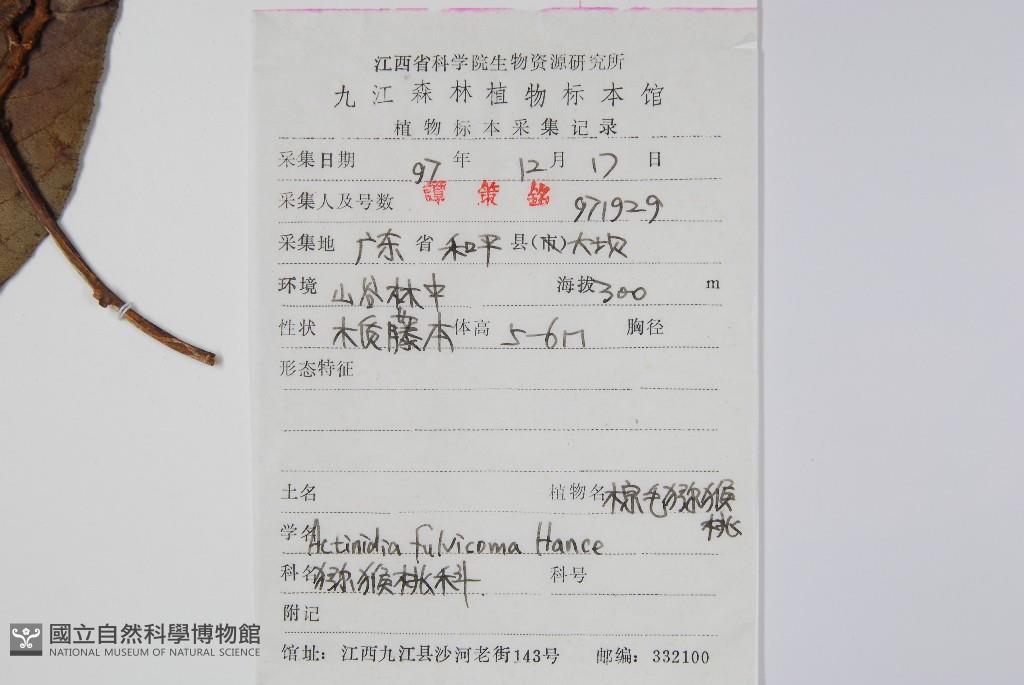 江西省科学院生物资源研究所
九江森林植物标本馆
植物标本采集记录
采集日期 97 年 12 月 17 日
采集人及号数 譚策銘 971929
采集地 广东 省 和平 县(市) 大坝
环境 山谷林中 海拔 300 m
性状 木质藤本 体高 5-6m 胸径
形态特征
土名 植物名 棕毛猕猴桃
学名 Actinidia fulvicoma Hance
科名 猕猴桃科 科号
附记
馆址: 江西九江县沙河老街143号 邮编: 332100
國立自然科學博物館
NATIONAL MUSEUM OF NATURAL SCIENCE